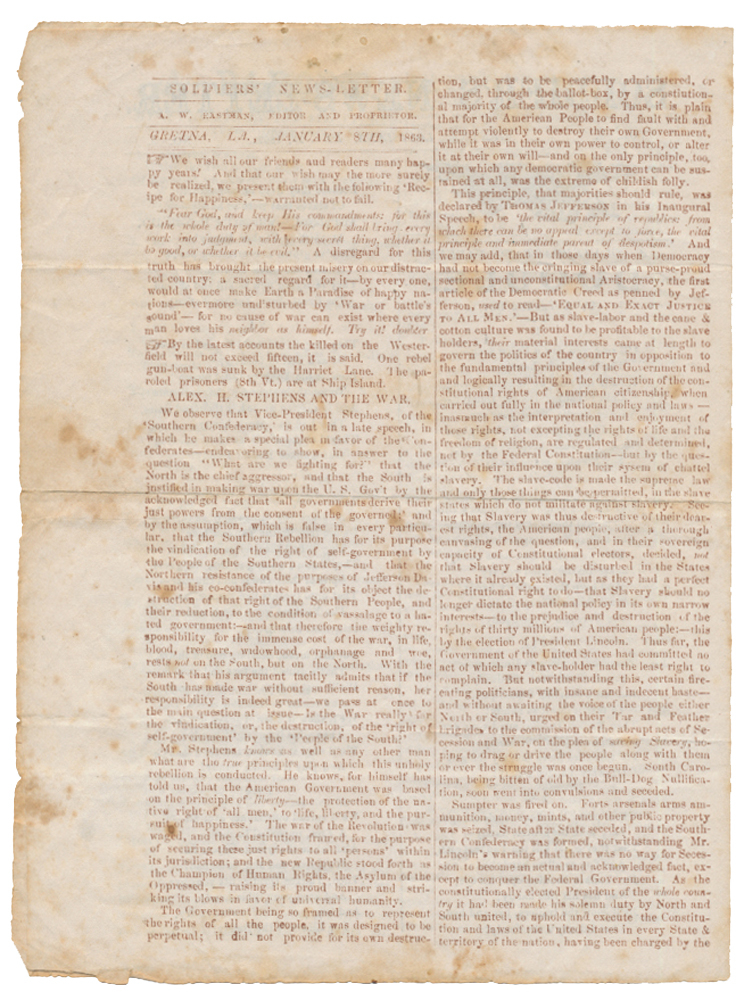 SOLDIERS' NEWS-LETTER.
A. W. EASTMAN, EDITOR AND PROPRIETOR.
GRETNA, LA., JANUARY 8TH, 1863.
☞"We wish all our friends and readers many hap-
py years! And that our wish may the more surely
be realized, we present them with the following 'Rec-
ipe for Happiness,'—warranted not to fall.
"Fear God, and keep His commandments: for this
is the whole duty of man!—For God shall bring every
work into judgment, with every secret thing, whether it
be good, or whether it be evil." A disregard for this
truth has brought the present misery on our distrac-
ted country: a sacred regard for it—by every one,
would at once make Earth a Paradise of happy na-
tions—evermore undisturbed by 'War or battle's
sound'— for no cause of war can exist where every
man loves his neighbor as himself. Try it! doubter
☞By the latest accounts the killed on the Wester-
field will not exceed fifteen, it is said. One rebel
gun-boat was sunk by the Harriet Lane. The pa-
roled prisoners (8th Vt.) are at Ship Island.
ALEX. H. STEPHENS AND THE WAR.
We observe that Vice-President Stephens, of the
'Southern Confederacy,' is out in a late speech, in
which he makes a special plea in favor of the Con-
federates—endeavoring to show, in answer to the
question "What are we fighting for?" that the
North is the chief aggressor, and that the South is
justified in making war upon the U. S. Gov't by the
acknowledged fact that 'all governments derive their
just powers from the consent of the governed;' and
by the assumption, which is false in every particu-
lar, that the Southern Rebellion has for its purpose
the vindication of the right of self-government by
the People of the Southern States,—and that the
Northern resistance of the purposes of Jefferson Da-
vis and his co-confederates has for its object the de-
struction of that right of the Southern People, and
their reduction, to the condition of vassalage to a ha-
ted government:—and that therefore the weighty re-
sponsibility for the immense cost of the war, in life,
blood, treasure, widowhood, orphanage and woe,
rests not on the South, but on the North. With the
remark that his argument tacitly admits that if the
South has made war without sufficient reason, her
responsibility is indeed great—we pass at once to
the main question at issue—Is the War really for
the vindication, or, the destruction, of the 'right of
self-government' by the 'People of the South?'
Mr. Stephens knows as well as any other man
what are the true principles upon which this unholy
rebellion is conducted. He knows, for himself has
told us, that the American Government was based
on the principle of liberty—the protection of the na-
tive right of 'all men,' to 'life, liberty, and the pur-
suit of happiness.' The war of the Revolution was
waged, and the Constitution framed, for the purpose
of securing these just rights to all 'persons' within
its jurisdiction; and the new Republic stood forth as
the Champion of Human Rights, the Asylum of the
Oppressed, — raising its proud banner and stri-
king its blows in favor of universal humanity.
The Government being so framed as to represent
the rights of all the people, it was designed to be
perpetual; it did not provide for its own destruc-
tion, but was to be peacefully administered, or
changed, through the ballot-box, by a constitution-
al majority of the whole people. Thus, it is plain
that for the American People to find fault with and
attempt violently to destroy their own Government,
while it was in their own power to control, or alter
it at their own will—and on the only principle, too,
upon which any democratic government can be sus-
tained at all, was the extreme of childish folly.
This principle, that majorities should rule, was
declared by THOMAS JEFFERSON in his Inaugural
Speech, to be 'the vital principle of republics; from
which there can be no appeal except to force, the vital
principle and immediate parent of despotism.' And
we may add, that in those days when Democracy
had not become the cringing slave of a purse-proud
sectional and unconstitutional Aristocracy, the first
article of the Democratic Creed as penned by Jef-
ferson, used to read—'EQUAL AND EXACT JUSTICE
TO ALL MEN.'—But as slave-labor and the cane &
cotton culture was found to be profitable to the slave
holders, their material interests came at length to
govern the politics of the country in opposition to
the fundamental principles of the Government and
and logically resulting in the destruction of the con-
stitutional rights of American citizenship, when
carried out fully in the national policy and laws —
inasmuch as the interpretation and enjoyment of
those rights, not excepting the rights of life and the
freedom of religion, are regulated and determined,
not by the Federal Constitution—but by the ques-
tion of their influence upon their sysem of chattel
slavery. The slave-code is made the supreme law
and only those things can be permitted, in the slave
states which do not militate against slavery. See-
ing that Slavery was thus destructive of their dear-
est rights, the American people, after a thorough
canvasing of the question, and in their sovereign
capacity of Constitutional electors, decided, not
that Slavery should be disturbed in the States
where it already existed, but as they had a perfect
Constitutional right to do—that Slavery should no
longer dictate the national policy in its own narrow
interests—to the prejudice and destruction of the
rights of thirty millions of American people:—this
by the election of President Lincoln. Thus far, the
Government of the United States had committed no
act of which any slave-holder had the least right to
complain. But notwithstanding this, certain fire-
eating politicians, with insane and indecent haste—
and without awaiting the voice of the people either
North or South, urged on their Tar and Feather
Brigades to the commission of the abrupt acts of Se-
cession and War, on the plea of saving Slavery, ho-
ping to drag or drive the people along with them
or ever the struggle was once begun. South Caro-
lina, being bitten of old by the Bull-Dog Nullifica-
tion, soon went into convulsions and seceded.
Sumpter was fired on. Forts arsenals arms am-
munition, money, mints, and other public property
was seized, State after State seceded, and the South-
ern Confederacy was formed, notwithstanding Mr.
Lincoln's warning that there was no way for Seces-
sion to become an actual and acknowledged fact, ex-
cept to conquer the Federal Government. As the
constitutionally elected President of the whole coun-
try it had been made his solemn duty by North and
South united, to uphold and execute the Constitu-
tion and laws of the United States in every State &
territory of the nation, having been charged by the